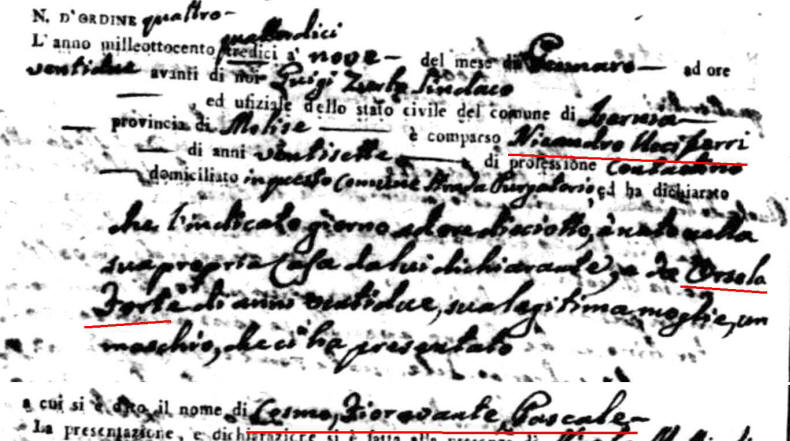 N. D'ORDINE quattro
quattordici
L'anno milleottocento tredici a' nove del mese di Gennaro ad ore
ventidue avanti di noi Luigi Sindaco
ed ufiziale dello stato civile del comune di Isernia
provincia di Molise è comparso Nicandro Uccisferri
di anni ventisette di professione Contadino
domiciliato in questo Comune Strada Purgatorio, ed ha dichiarato
che l'indicato giorno ad ore dieciotto, è nato nella
sua propria Casa da lui dichiarante, e da Orsola
Forte di anni ventidue, sua legitima moglie, un
maschio, che ci ha presentato
a cui si è dato il nome di Cosmo, Fioravante Pascale
La presentazione, e dichiarazione si è fatta alla presenza di